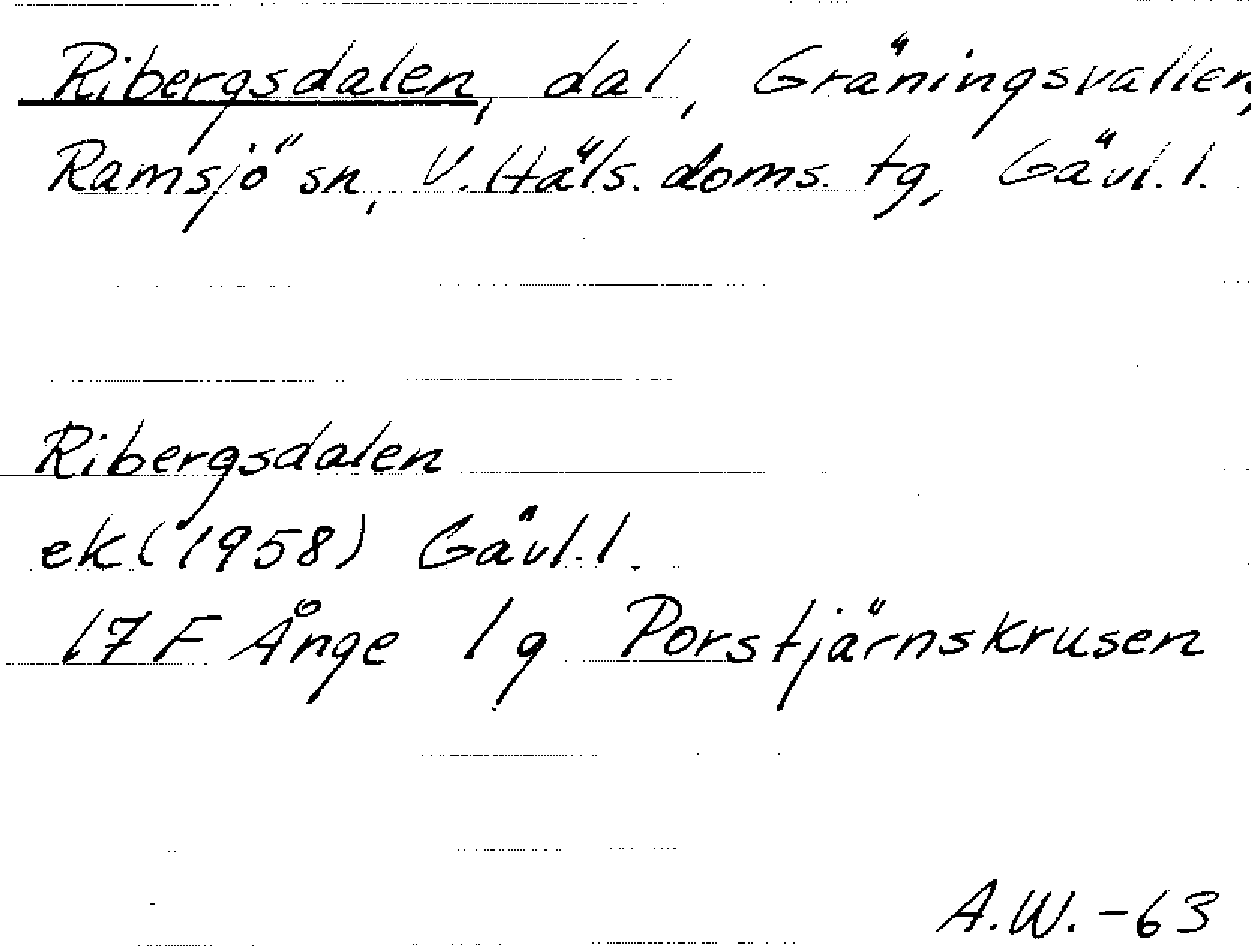 Ribergsdalen, dal, Gräningsvallen,
Ramsjö sn, V. Häls. doms. tg, Gävl. l.
Ribergsdalen
ek (1958) Gävl. l.
17 F Ånge 1 g Porstjärnskrusen
A.W. -63